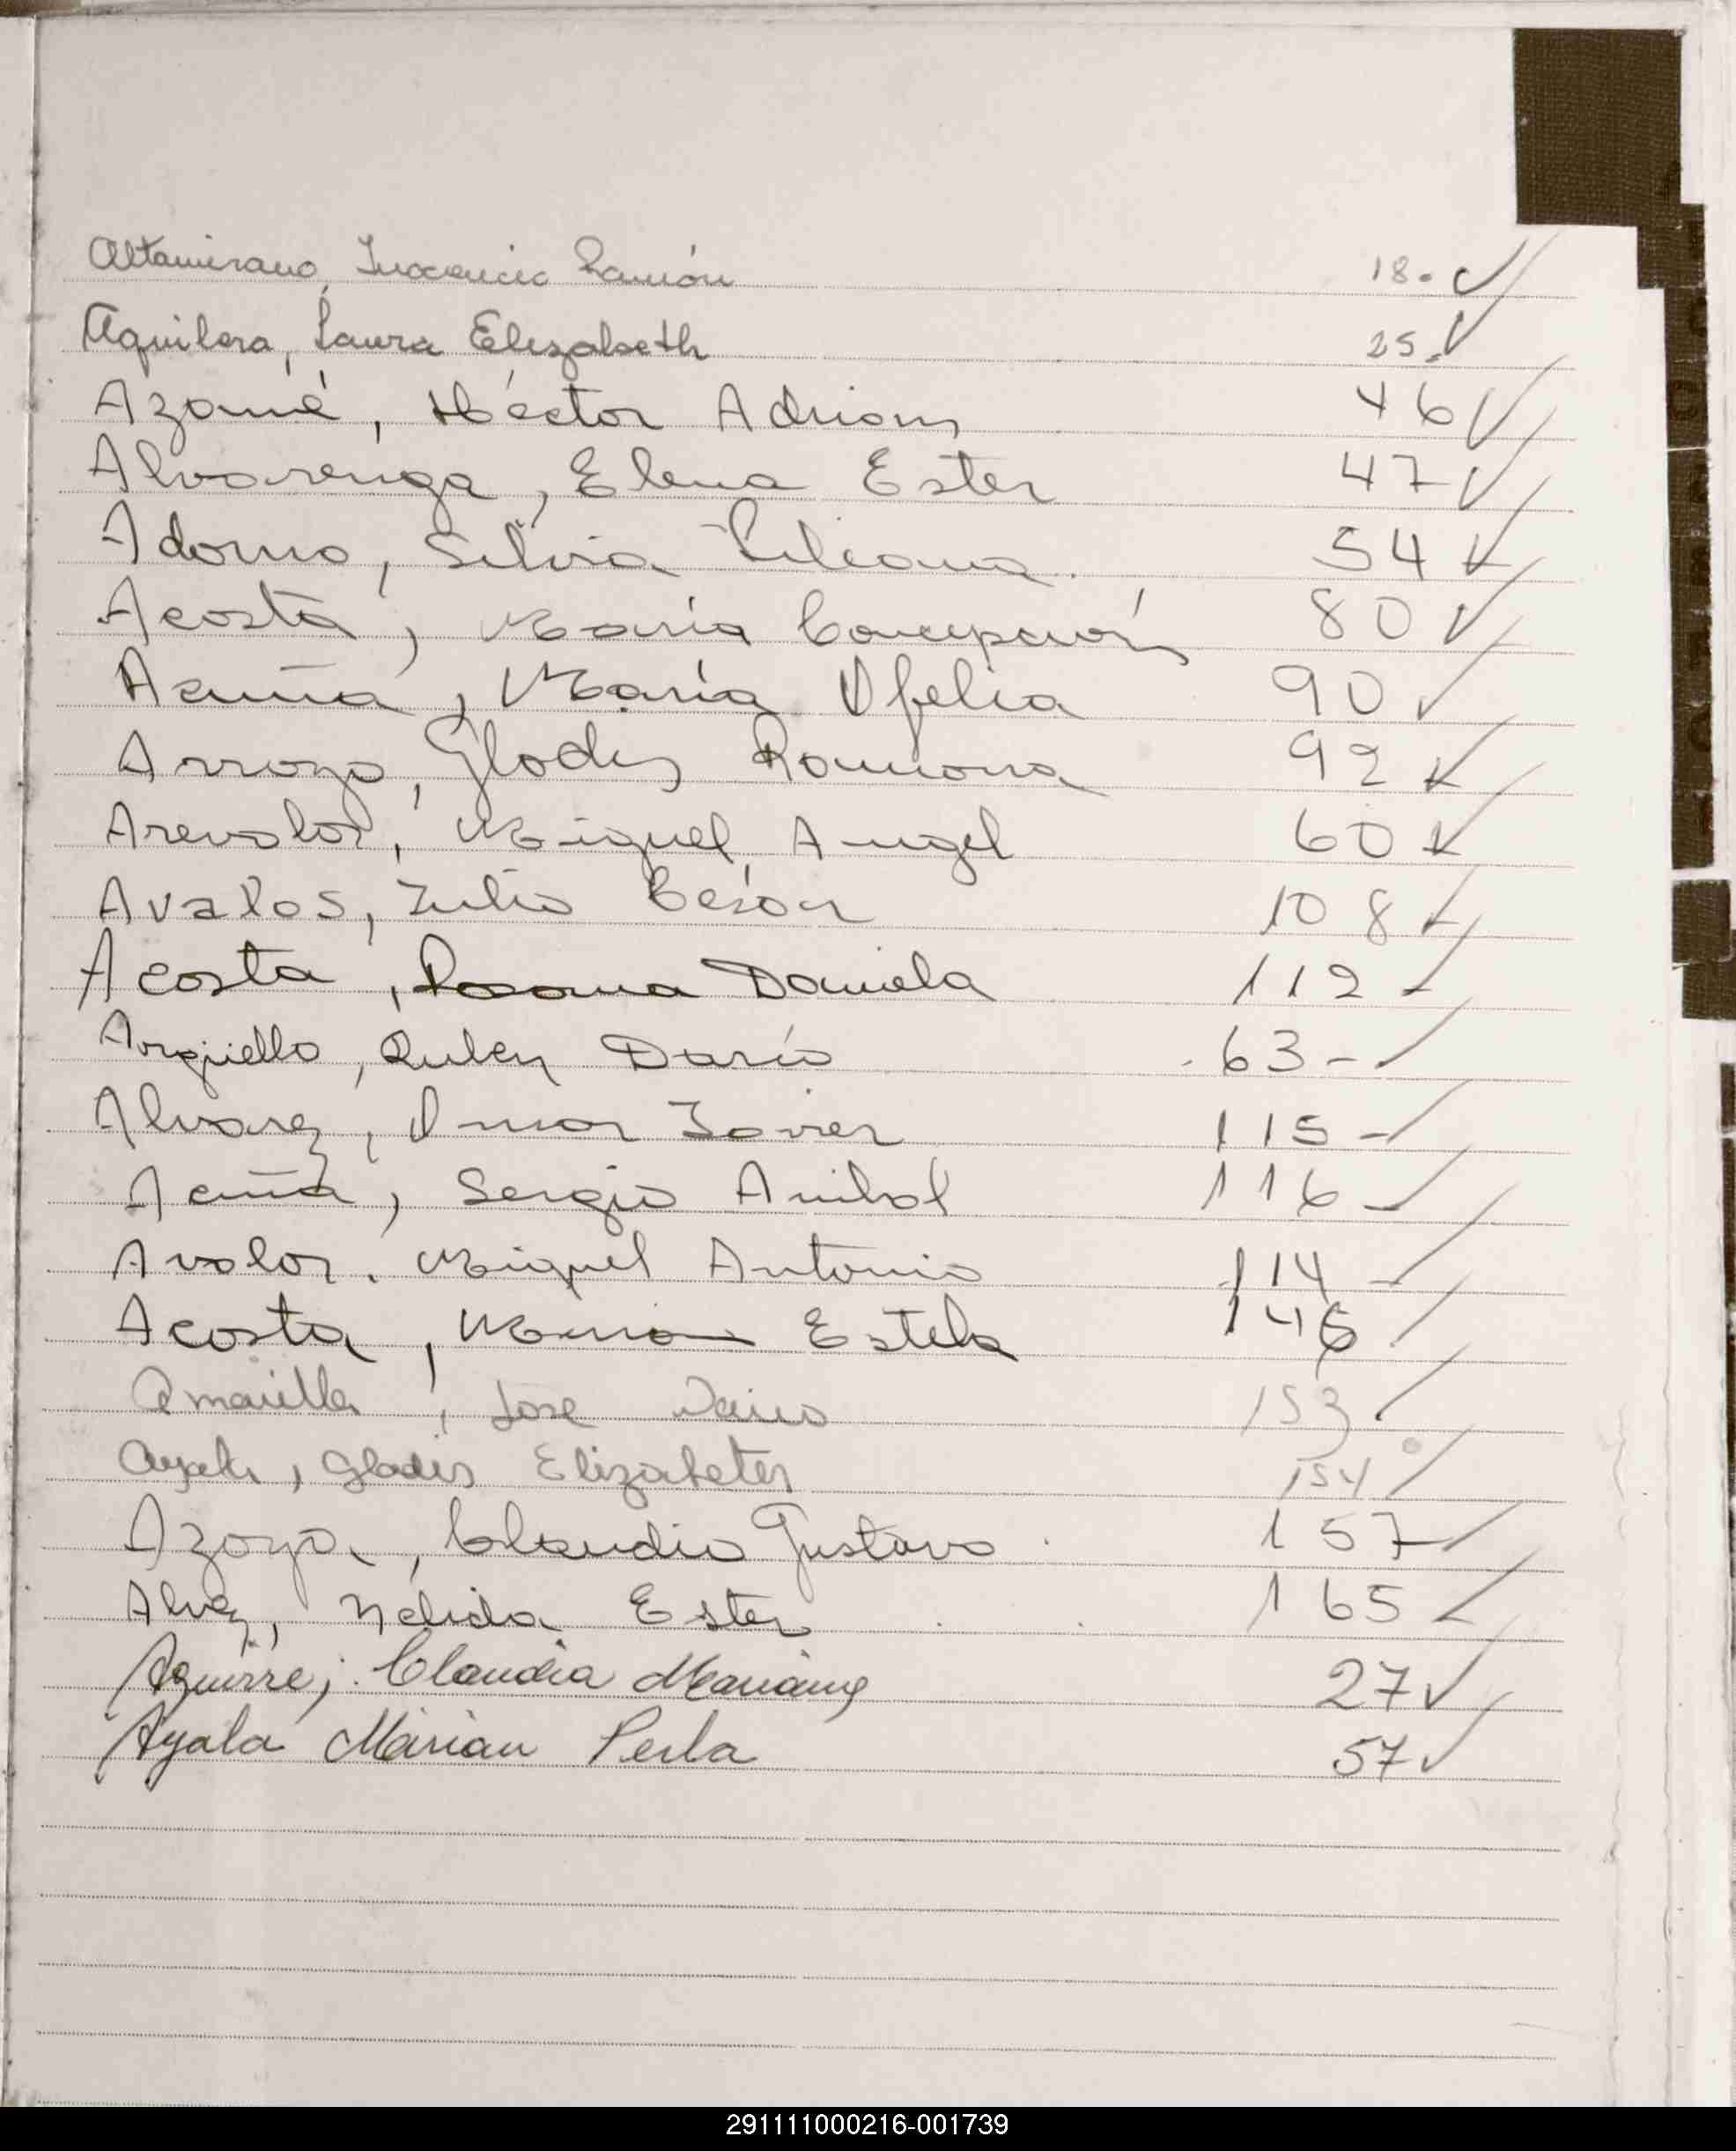 Altamirano, Inocencio Ramón 18.
Aguilera, Laura Elizabeth 25.
Azamé, Héctor Adrian 46
Alvarenga, Elena Ester 47
Adorno, Silvia Liliana 54
Acosta, María Concepción 80
Acuña, María Ofelia 90
Arroyo, Glodis Ramona 92
Arevalos, Miguel Angel 60
Avalos, Julio Cesár 108
Acosta, Rosana Daniela 112
Argüello, Ruben Darío 63-
Alvarez, Omar Javier 115-
Acuña, Sergio Anibal 116
Avalos. Miguel Antonio 114
Acosta, Maria Estela 146
Amarilla, Jose Dario 153
Ayala, Gladis Elizabeter 154
Azoya, Claudio Gustavo 157
Alvez, Nélida Ester 165
Aguirre; Claudia Mariana 27
Ayala Mirian Perla 57
291111000216-001739